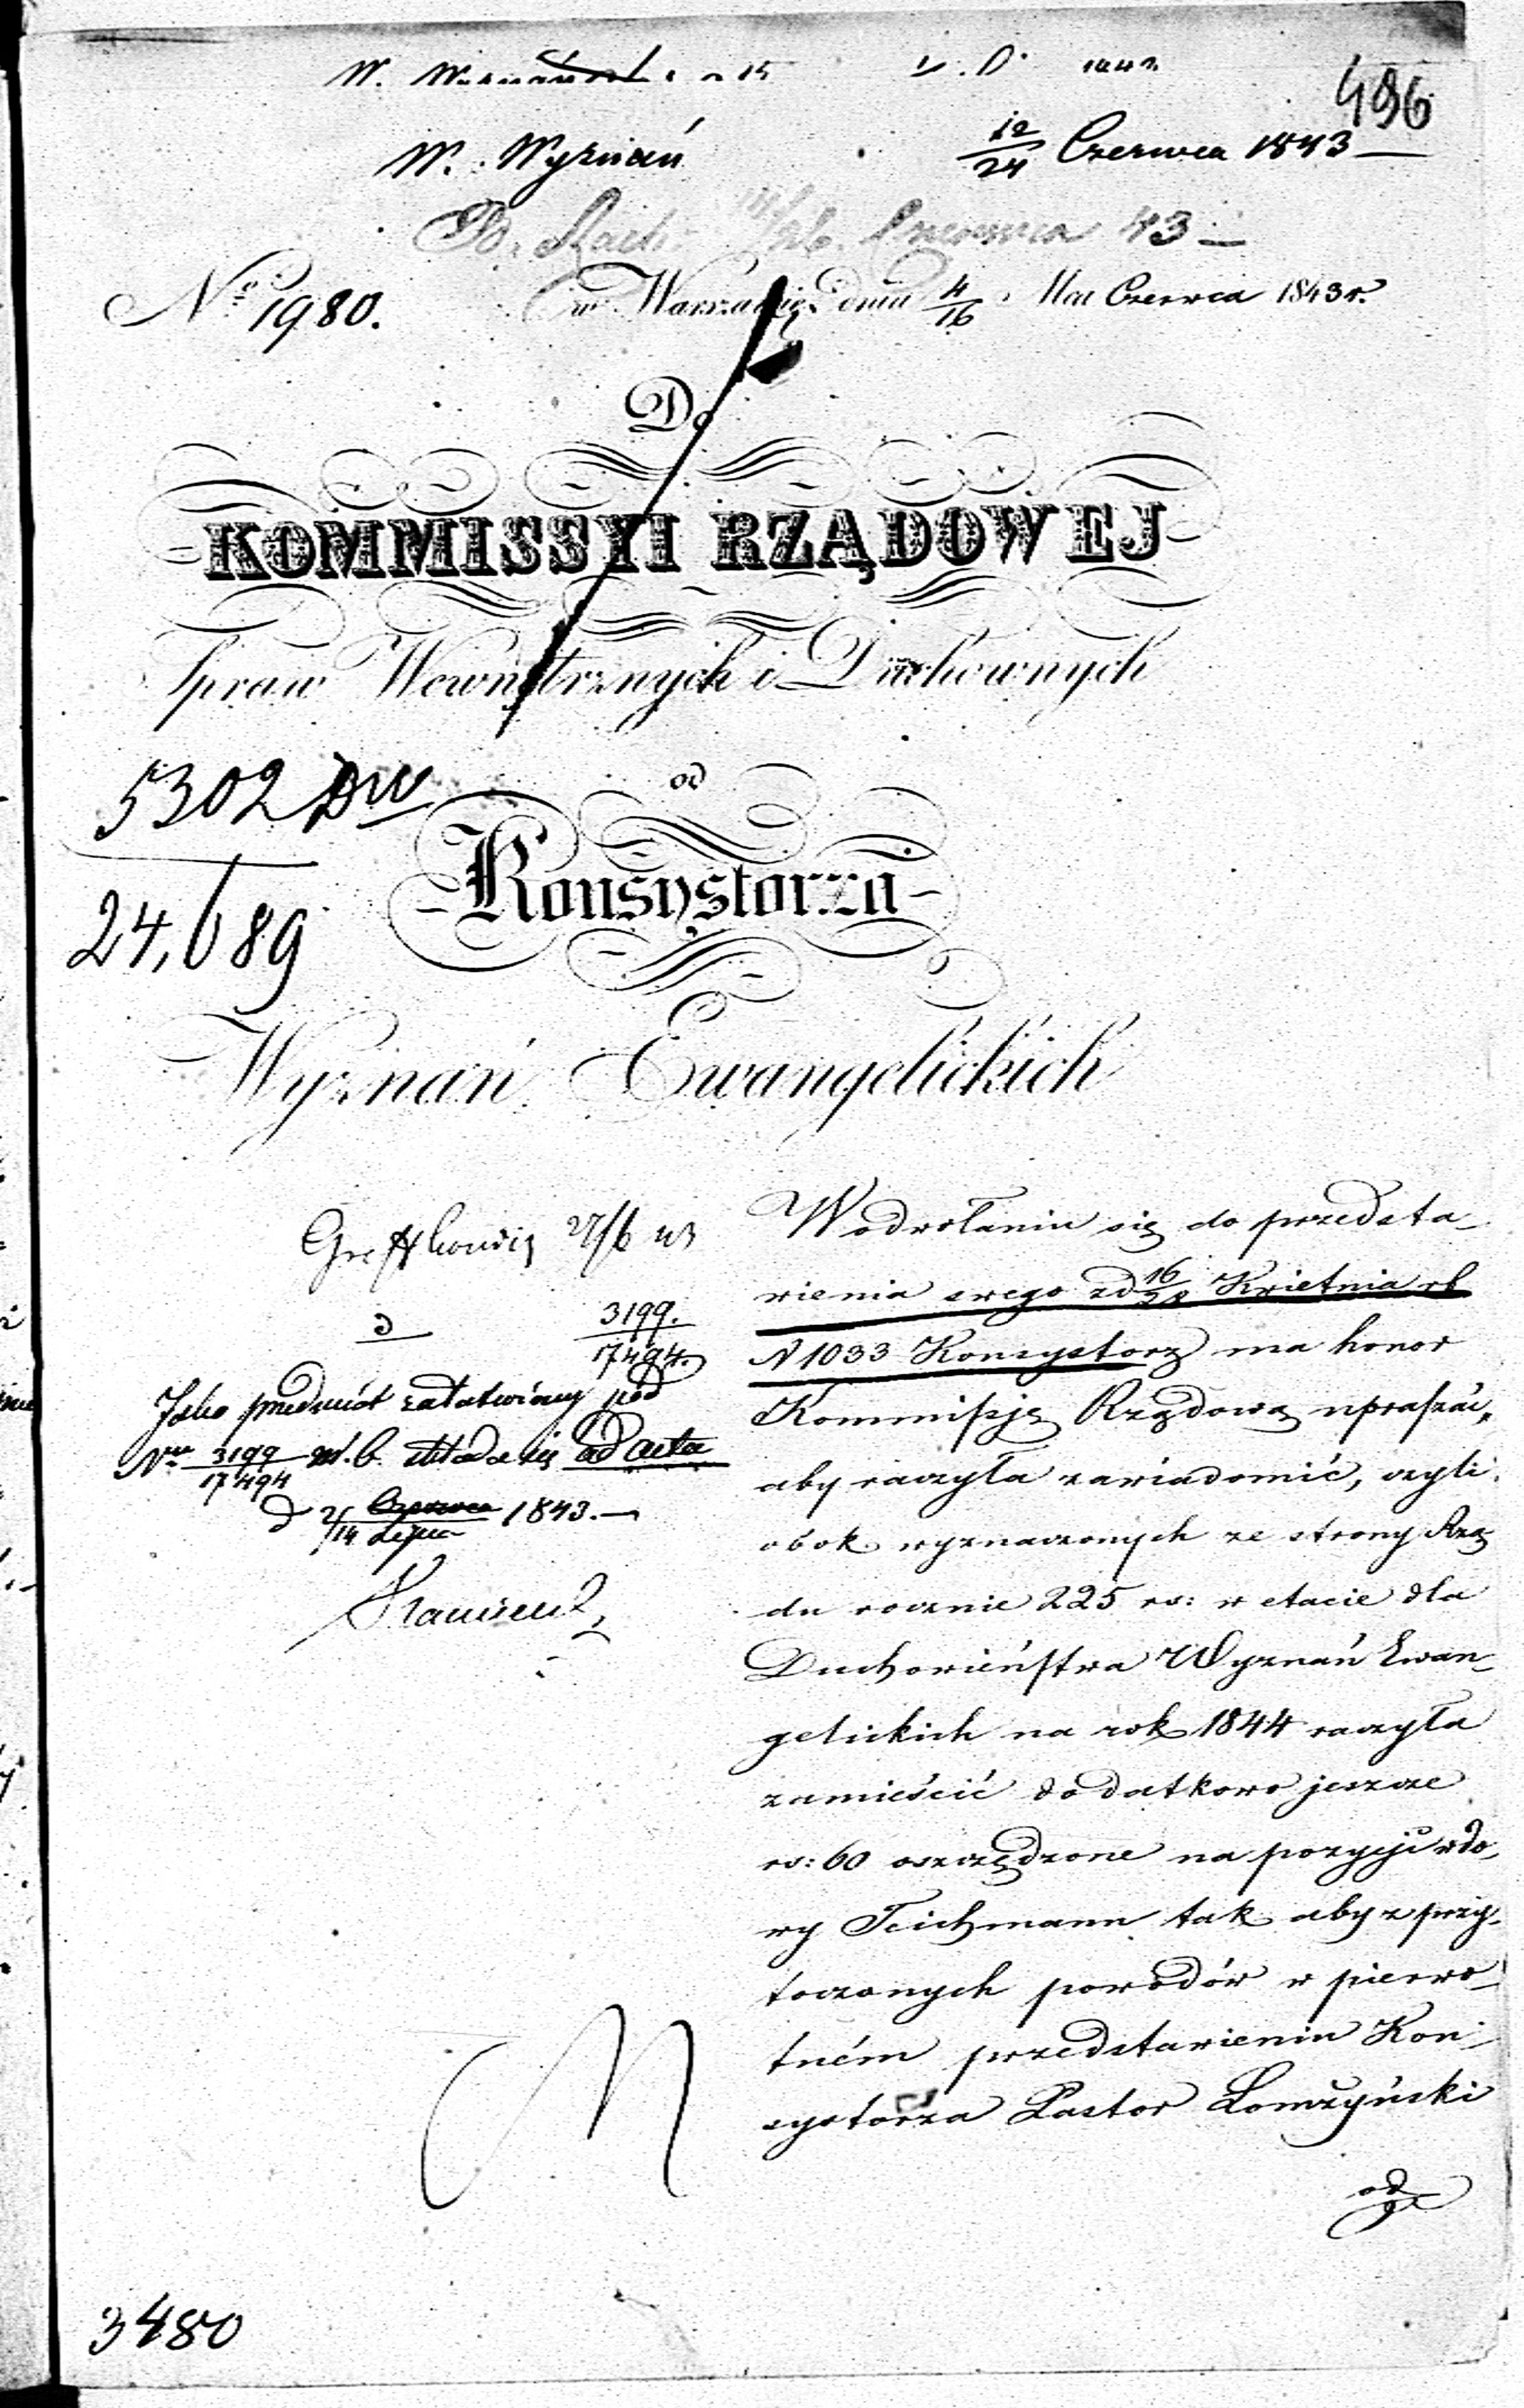 496
W. Wyznań 12/24 Czerwca 1843
Czerwca 43
No 1980. w Warszawie dnia 4/16 Mca Czerwca 1843 r.
Do
KOMMISSYI RZĄDOWEJ
Spraw Wewnętrznych i Duchownych
5302 DW
24,689
od
Konsystorza
Wyznań Ewangelickich
27/6 43
3199.
17494.
Jako przedmiot załatwiony pod
Nrm 3199/17494 m. b. składa się ad acta
d 2/14 Czerwca Lipca 1843.
W odwołaniu się do przedsta-
wienia swego z d 16/28 Kwietnia rb
N 1033 Konsystorz ma honor
Kommissję Rządową upraszać,
aby raczyła zawiadomić, czyli
obok wyznaczonych ze strony Rzą
du rocznie 225 rs: w etacie dla
Duchowieństwa Wyznań Ewan-
gelickich na rok 1844 raczyła
zamieścić dodatkowo jeszcze
rs: 60 oszczędzone na pozycji wdo-
wy Teichmann tak aby z przy-
toczonych powodów w pierwo-
tném przedstawieniu Kon-
systorza Pastor Łomżyński
od
3480